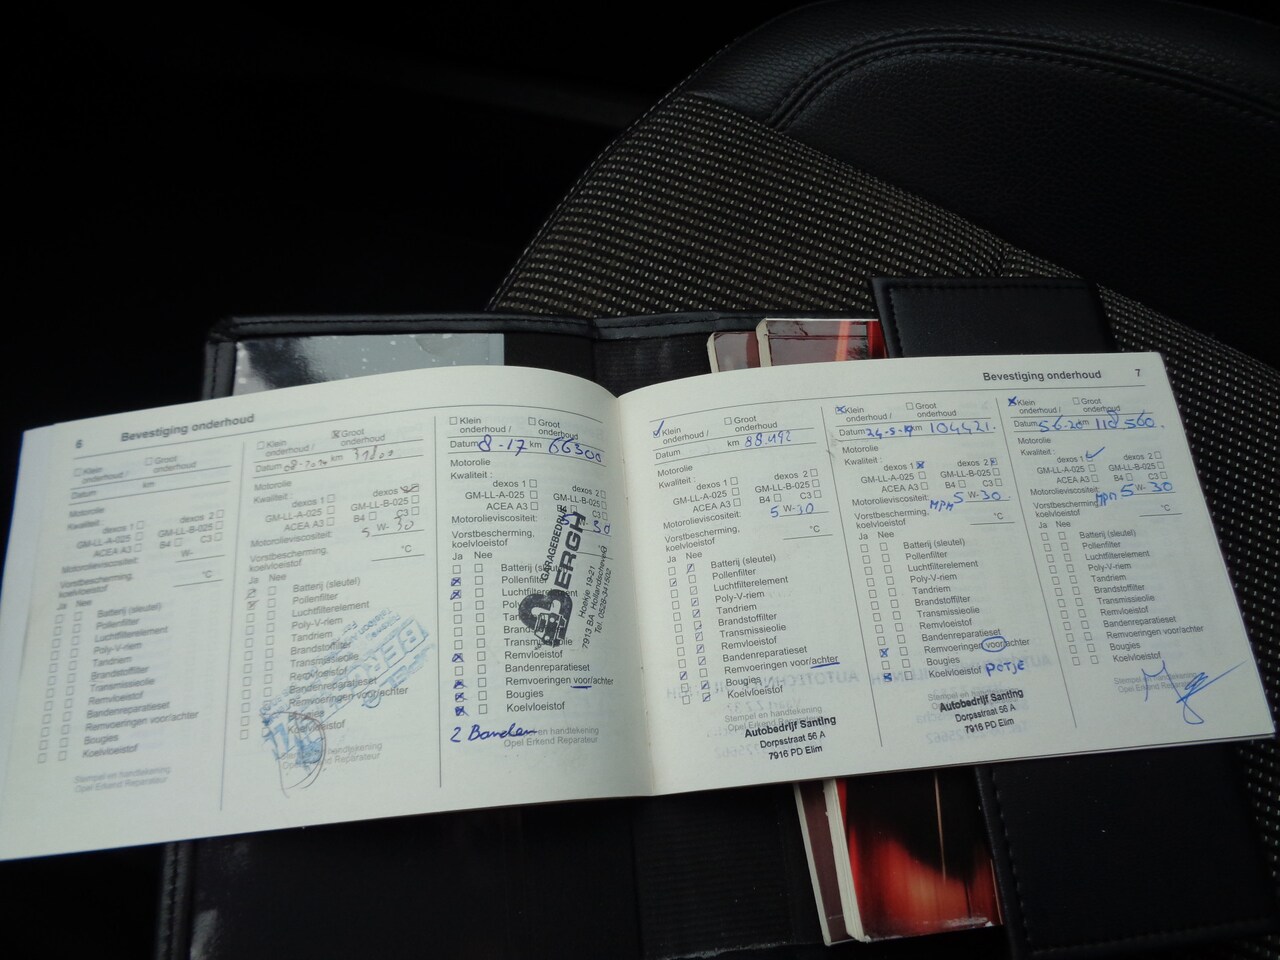 6 Bevestiging onderhoud
Klein onderhoud /
Groot onderhoud
Datum km
Motorolie
Kwaliteit : dexos 1 dexos 2
GM-LL-A-025 GM-LL-B-025
ACEA A3 B4 C3
Motorolieviscositeit: W-
Vorstbescherming,
koelvloeistof °C
Ja Nee
Batterij (sleutel)
Pollenfilter
Luchtfilterelement
Poly-V-riem
Tandriem
Brandstoffilter
Transmissieolie
Remvloeistof
Bandenreparatieset
Remvoeringen voor/achter
Bougies
Koelvloeistof
Stempel en handtekening
Opel Erkend Reparateur
Klein onderhoud /
Groot onderhoud
Datum km
Motorolie
Kwaliteit : dexos 1 dexos 2
GM-LL-A-025 GM-LL-B-025
ACEA A3 B4 C3
Motorolieviscositeit: 5 W- 30
Vorstbescherming,
koelvloeistof °C
Ja Nee
Batterij (sleutel)
Pollenfilter
Luchtfilterelement
Poly-V-riem
Tandriem
Brandstoffilter
Transmissieolie
Remvloeistof
Bandenreparatieset
Remvoeringen voor/achter
Bougies
Koelvloeistof
Stempel en handtekening
Opel Erkend Reparateur
Klein onderhoud /
Groot onderhoud
Datum 8-17 km 66300
Motorolie
Kwaliteit : dexos 1 dexos 2
GM-LL-A-025 GM-LL-B-025
ACEA A3 B4 C3
Motorolieviscositeit: 5 30
Vorstbescherming,
koelvloeistof
Ja Nee
Batterij (sleutel)
Pollenfilter
Luchtfilterelement
Tandriem
Transmissieolie
Remvloeistof
Bandenreparatieset
Remvoeringen voor/achter
Bougies
Koelvloeistof
GARAGEBEDRIJF
BERGH
Hoekje 19-21
7913 BA Hollandscheveld
Tel. 0528-341502
2 Banden
en handtekening
Opel Erkend Reparateur
Bevestiging onderhoud 7
Klein onderhoud /
Groot onderhoud
Datum km 88492
Motorolie
Kwaliteit : dexos 1 dexos 2
GM-LL-A-025 GM-LL-B-025
ACEA A3 B4 C3
Motorolieviscositeit: 5 W- 30
Vorstbescherming,
koelvloeistof °C
Ja Nee
Batterij (sleutel)
Pollenfilter
Luchtfilterelement
Poly-V-riem
Tandriem
Brandstoffilter
Transmissieolie
Remvloeistof
Bandenreparatieset
Remvoeringen voor/achter
Bougies
Koelvloeistof
Stempel en handtekening
Opel Erkend Reparateur
Autobedrijf Santing
Dorpsstraat 56 A
7916 PD Elim
Klein onderhoud /
Groot onderhoud
Datum 24-5-19 km 104421.
Motorolie
Kwaliteit : dexos 1 dexos 2
GM-LL-A-025 GM-LL-B-025
ACEA A3 B4 C3
Motorolieviscositeit: MPM 5 W- 30
Vorstbescherming,
koelvloeistof °C
Ja Nee
Batterij (sleutel)
Pollenfilter
Luchtfilterelement
Poly-V-riem
Tandriem
Brandstoffilter
Transmissieolie
Remvloeistof
Bandenreparatieset
Remvoeringen voor/achter
Bougies
Koelvloeistof potje
Stempel en handtekening
Autobedrijf Santing
Dorpsstraat 56 A
7916 PD Elim
Klein onderhoud /
Groot onderhoud
Datum 5-6-20 km 118560.
Motorolie
Kwaliteit : dexos 1 dexos 2
GM-LL-A-025 GM-LL-B-025
ACEA A3 B4 C3
Motorolieviscositeit: MPM 5 W- 30
Vorstbescherming,
koelvloeistof °C
Ja Nee
Batterij (sleutel)
Pollenfilter
Luchtfilterelement
Poly-V-riem
Tandriem
Brandstoffilter
Transmissieolie
Remvloeistof
Bandenreparatieset
Remvoeringen voor/achter
Bougies
Koelvloeistof
Stempel en handtekening
Opel Erkend Reparateur